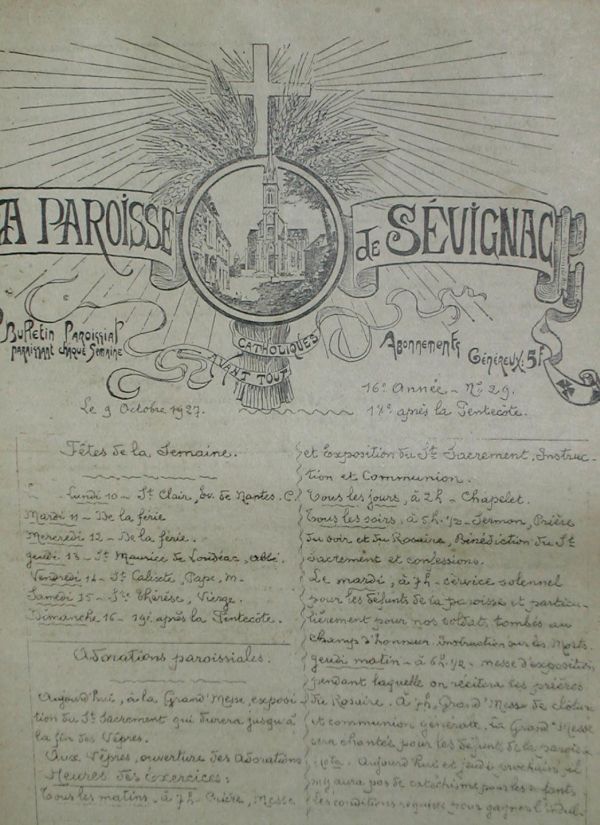 A PAROISSE de SÉVIGNAC
Bulletin Paroissial
paraissant chaque Semaine
CATHOLIQUES
AVANT TOUT
Abonnements
Généreux: 5F
Le 9 Octobre 1927.
16e Année - No 29.
18e après la Pentecôte.
Fêtes de la Semaine.
Lundi 10 - St Clair, Ev. de Nantes. C.
Mardi 11 - De la férie
Mercredi 12 - De la férie.
Jeudi 13 - St Maurice de Loudéac, Abbé.
Vendredi 14 - St Calixte, Pape, M.
Samedi 15 - Ste Thérèse, Vierge.
Dimanche 16 - 19e après la Pentecôte.
Adorations paroissiales.
Aujourd'hui, à la Grand'Messe, exposi-
tion du St Sacrement qui durera jusqu'à
la fin des Vêpres.
Aux Vêpres, ouverture des Adorations
Heures des exercices:
Tous les matins - à 7h - Prière, Messe
et Exposition du St Sacrement, Instruc-
tion et Communion.
Tous les jours, à 2h - Chapelet.
Tous les soirs, à 5h.1/2 - Sermon, Prière
du soir et du Rosaire, Bénédiction du St
Sacrement et confessions.
Le mardi, à 7h - service solennel
pour les défunts de la paroisse et particu-
lièrement pour nos soldats tombés au
champ d'honneur. Instruction sur les Morts.
Jeudi matin - à 6h.1/2 - messe d'exposition
pendant laquelle on récitera les prières
du Rosaire. A 7h, Grand'Messe de clôture
et communion générale. La Grand'Messe
sera chantée pour les défunts de la parois-
Nota - Aujourd'hui et jeudi prochain, il
n'y aura pas de catéchisme pour les enfants
les conditions requises pour gagner l'indul-